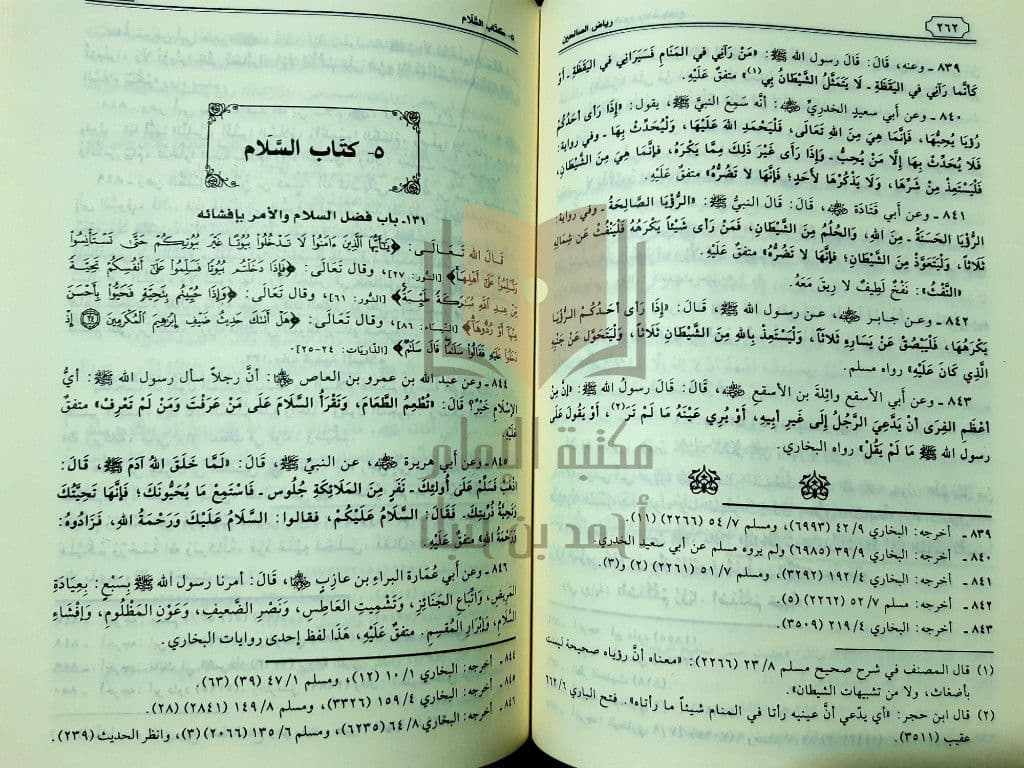 ٢٦٢
رياض الصالحين
٨٣٩ ـ وعنه، قَالَ: قَالَ رسول الله ﷺ: «مَنْ رَآنِي في المَنَامِ فَسَيَرَانِي في اليَقَظَةِ ـ أَوْ
كَأنَّما رَآنِي في اليَقَظَةِ ـ لَا يَتَمَثَّلُ الشَّيْطَانُ بِي(١)» متفقٌ عَلَيْهِ.
٨٤٠ ـ وعن أبي سعيدٍ الخدريِّ ﷺ: أنَّه سَمِعَ النبيَّ ﷺ، يقول: «إِذَا رَأى أَحَدُكُمْ
رُؤيَا يُحِبُّهَا، فَإنَّمَا هِيَ مِنَ اللهِ تَعَالَى، فَلْيَحْمَدِ اللهَ عَلَيْهَا، وَلْيُحَدِّثْ بِهَا ـ وفي رواية:
فَلَا يُحَدِّثْ بِهَا إلَّا مَنْ يُحِبُّ ـ وَإِذَا رَأَى غَيْرَ ذَلِكَ مِمَّا يَكْرَهُ، فإنَّمَا هِيَ مِنَ الشَّيْطَانِ،
فَلْيَسْتَعِذْ مِنْ شَرِّهَا، وَلَا يَذْكُرْهَا لأَحَدٍ؛ فإنَّهَا لَا تَضُرُّهُ» متفقٌ عَلَيْهِ.
٨٤١ ـ وعن أبي قَتَادَة ﷺ، قَالَ: قَالَ النبيُّ ﷺ: «الرُّؤْيَا الصَّالِحَةُ ـ وفي رواية:
الرُّؤْيَا الحَسَنَةُ ـ مِنَ اللهِ، وَالحُلُمُ مِنَ الشَّيْطَانِ، فَمَنْ رَأى شَيْئاً يَكْرَهُهُ فَلْيَنْفُثْ عَن شِمَالِهِ
ثَلَاثاً، وَلْيَتَعَوَّذْ مِنَ الشَّيْطَانِ؛ فإنَّهَا لَا تَضُرُّهُ» متفقٌ عَلَيْهِ.
«النَّفْثُ»: نَفْخٌ لَطِيفٌ لَا رِيقَ مَعَهُ.
٨٤٢ ـ وعن جابر ﷺ، عن رسول الله ﷺ، قَالَ: «إِذَا رَأَى أَحَدُكُمْ الرُّؤْيَا
يَكْرَهُهَا، فَلْيَبْصُقْ عَنْ يَسَارِهِ ثَلَاثَاً، وَلْيَسْتَعِذْ بِاللهِ مِنَ الشَّيْطَانِ ثَلَاثاً، وَلْيَتَحَوَّلْ عَنْ جَنْبِهِ
الَّذِي كَانَ عَلَيْهِ» رواه مسلم.
٨٤٣ ـ وعن أبي الأسقع واثِلةَ بن الأسقعِ ﷺ، قَالَ: قَالَ رسولُ اللهِ ﷺ: «إنَّ مِنْ
أَعْظَمِ الفِرَى أَنْ يَدَّعِيَ الرَّجُلُ إِلَى غَيرِ أَبِيهِ، أَوْ يُرِي عَيْنَهُ مَا لَمْ تَرَ(٢)، أَوْ يَقُولَ عَلَى
رسول الله ﷺ مَا لَمْ يَقُلْ» رواه البخاري.
٨٣٩ ـ أخرجه: البخاري ٤٢/٩ (٦٩٩٣)، ومسلم ٥٤/٧ (٢٢٦٦) (١١).
٨٤٠ ـ أخرجه: البخاري ٣٩/٩ (٦٩٨٥) ولم يروه مسلم عن أبي سعيد الخدري.
٨٤١ ـ أخرجه: البخاري ١٩٢/٤ (٣٢٩٢)، ومسلم ٥١/٧ (٢٢٦١) (٢) و(٣).
٨٤٢ ـ أخرجه: مسلم ٥٢/٧ (٢٢٦٢) (٥).
٨٤٣ ـ أخرجه: البخاري ٢١٩/٤ (٣٥٠٩).
(١) قال المصنف في شرح صحيح مسلم ٢٣/٨ (٢٢٦٦): «معناه أنَّ رؤياه صحيحة ليست
بأضغاث، ولا من تشبيهات الشيطان».
(٢) قال ابن حجر: «أي يدّعي أنَّ عينيه رأتا في المنام شيئاً ما رأتاه». فتح الباري ٦٦٢/٦
عقيب (٣٥١١).
٥ـ كتَاب السَّلَام
٥ـ كتَاب السَّلَام
١٣١ـ باب فضل السلام والأمر بإفشائه
قَالَ الله تَعَالَى: ﴿يَٰٓأَيُّهَا ٱلَّذِينَ ءَامَنُوا۟ لَا تَدْخُلُوا۟ بُيُوتًا غَيْرَ بُيُوتِكُمْ حَتَّىٰ تَسْتَأْنِسُوا۟
وَتُسَلِّمُوا۟ عَلَىٰٓ أَهْلِهَا﴾ [النُّور: ٢٧] وقال تَعَالَى: ﴿فَإِذَا دَخَلْتُم بُيُوتًا فَسَلِّمُوا۟ عَلَىٰٓ أَنفُسِكُمْ تَحِيَّةً
مِّنْ عِندِ ٱللَّهِ مُبَٰرَكَةً طَيِّبَةً﴾ [النُّور: ٦١]، وقال تَعَالَى: ﴿وَإِذَا حُيِّيتُم بِتَحِيَّةٍ فَحَيُّوا۟ بِأَحْسَنَ
مِنْهَآ أَوْ رُدُّوهَآ﴾ [النِّسَاء: ٨٦]، وقال تَعَالَى: ﴿هَلْ أَتَىٰكَ حَدِيثُ ضَيْفِ إِبْرَٰهِيمَ ٱلْمُكْرَمِينَ ۝٢٤ إِذْ
دَخَلُوا۟ عَلَيْهِ فَقَالُوا۟ سَلَٰمًا قَالَ سَلَٰمٌ﴾ [الذّاريَات: ٢٤-٢٥].
٨٤٤ ـ وعن عبد الله بن عمرو بن العاص ﷺ: أنَّ رجلاً سأل رسول الله ﷺ: أيُّ
الإسْلَامِ خَيْرٌ؟ قَالَ: «تُطْعِمُ الطَّعَامَ، وَتَقْرَأُ السَّلَامَ عَلَى مَنْ عَرَفْتَ وَمَنْ لَمْ تَعْرِفْ» متفقٌ
عَلَيْهِ.
٨٤٥ ـ وعن أَبي هريرة ﷺ، عن النبيِّ ﷺ، قَالَ: «لَمَّا خَلَقَ اللهُ آدَمَ ﷺ، قَالَ:
اذْهَبْ فَسَلِّمْ عَلَى أُولَئِكَ ـ نَفَرٍ مِنَ المَلَائِكَةِ جُلُوس ـ فَاسْتَمِعْ مَا يُحَيُّونَكَ؛ فَإنَّهَا تَحِيَّتُكَ
وَتَحِيَّةُ ذُرِّيَّتِكَ. فَقَالَ: السَّلَامُ عَلَيْكُمْ، فقالوا: السَّلَامُ عَلَيْكَ وَرَحْمَةُ اللهِ، فَزَادُوهُ:
وَرَحْمَةُ اللهِ» متفقٌ عَلَيْهِ.
٨٤٦ ـ وعن أَبي عُمَارة البراءِ بن عازِبٍ ﷺ، قَالَ: أمرنا رسول الله ﷺ بِسَبْعٍ: بِعِيَادَةِ
المَرِيضِ، وَاتِّبَاعِ الجَنَائِزِ، وَتَشْمِيتِ العَاطِسِ، وَنَصْرِ الضَّعيفِ، وَعَوْنِ المَظْلُومِ، وَإفْشَاءِ
السَّلَامِ، وَإبْرَارِ المُقسِمِ. متفقٌ عَلَيْهِ، هَذَا لفظ إحدى روايات البخاري.
٨٤٤ ـ أخرجه: البخاري ١٠/١ (١٢)، ومسلم ٤٧/١ (٣٩) (٦٣).
٨٤٥ ـ أخرجه: البخاري ١٥٩/٤ (٣٣٢٦)، ومسلم ١٤٩/٨ (٢٨٤١) (٢٨).
٨٤٦ ـ أخرجه: البخاري ٦٤/٨ (٦٢٣٥)، ومسلم ١٣٥/٦ (٢٠٦٦) (٣)، وانظر الحديث (٢٣٩)
مكتبة الإمام
أحمد بن حنبل